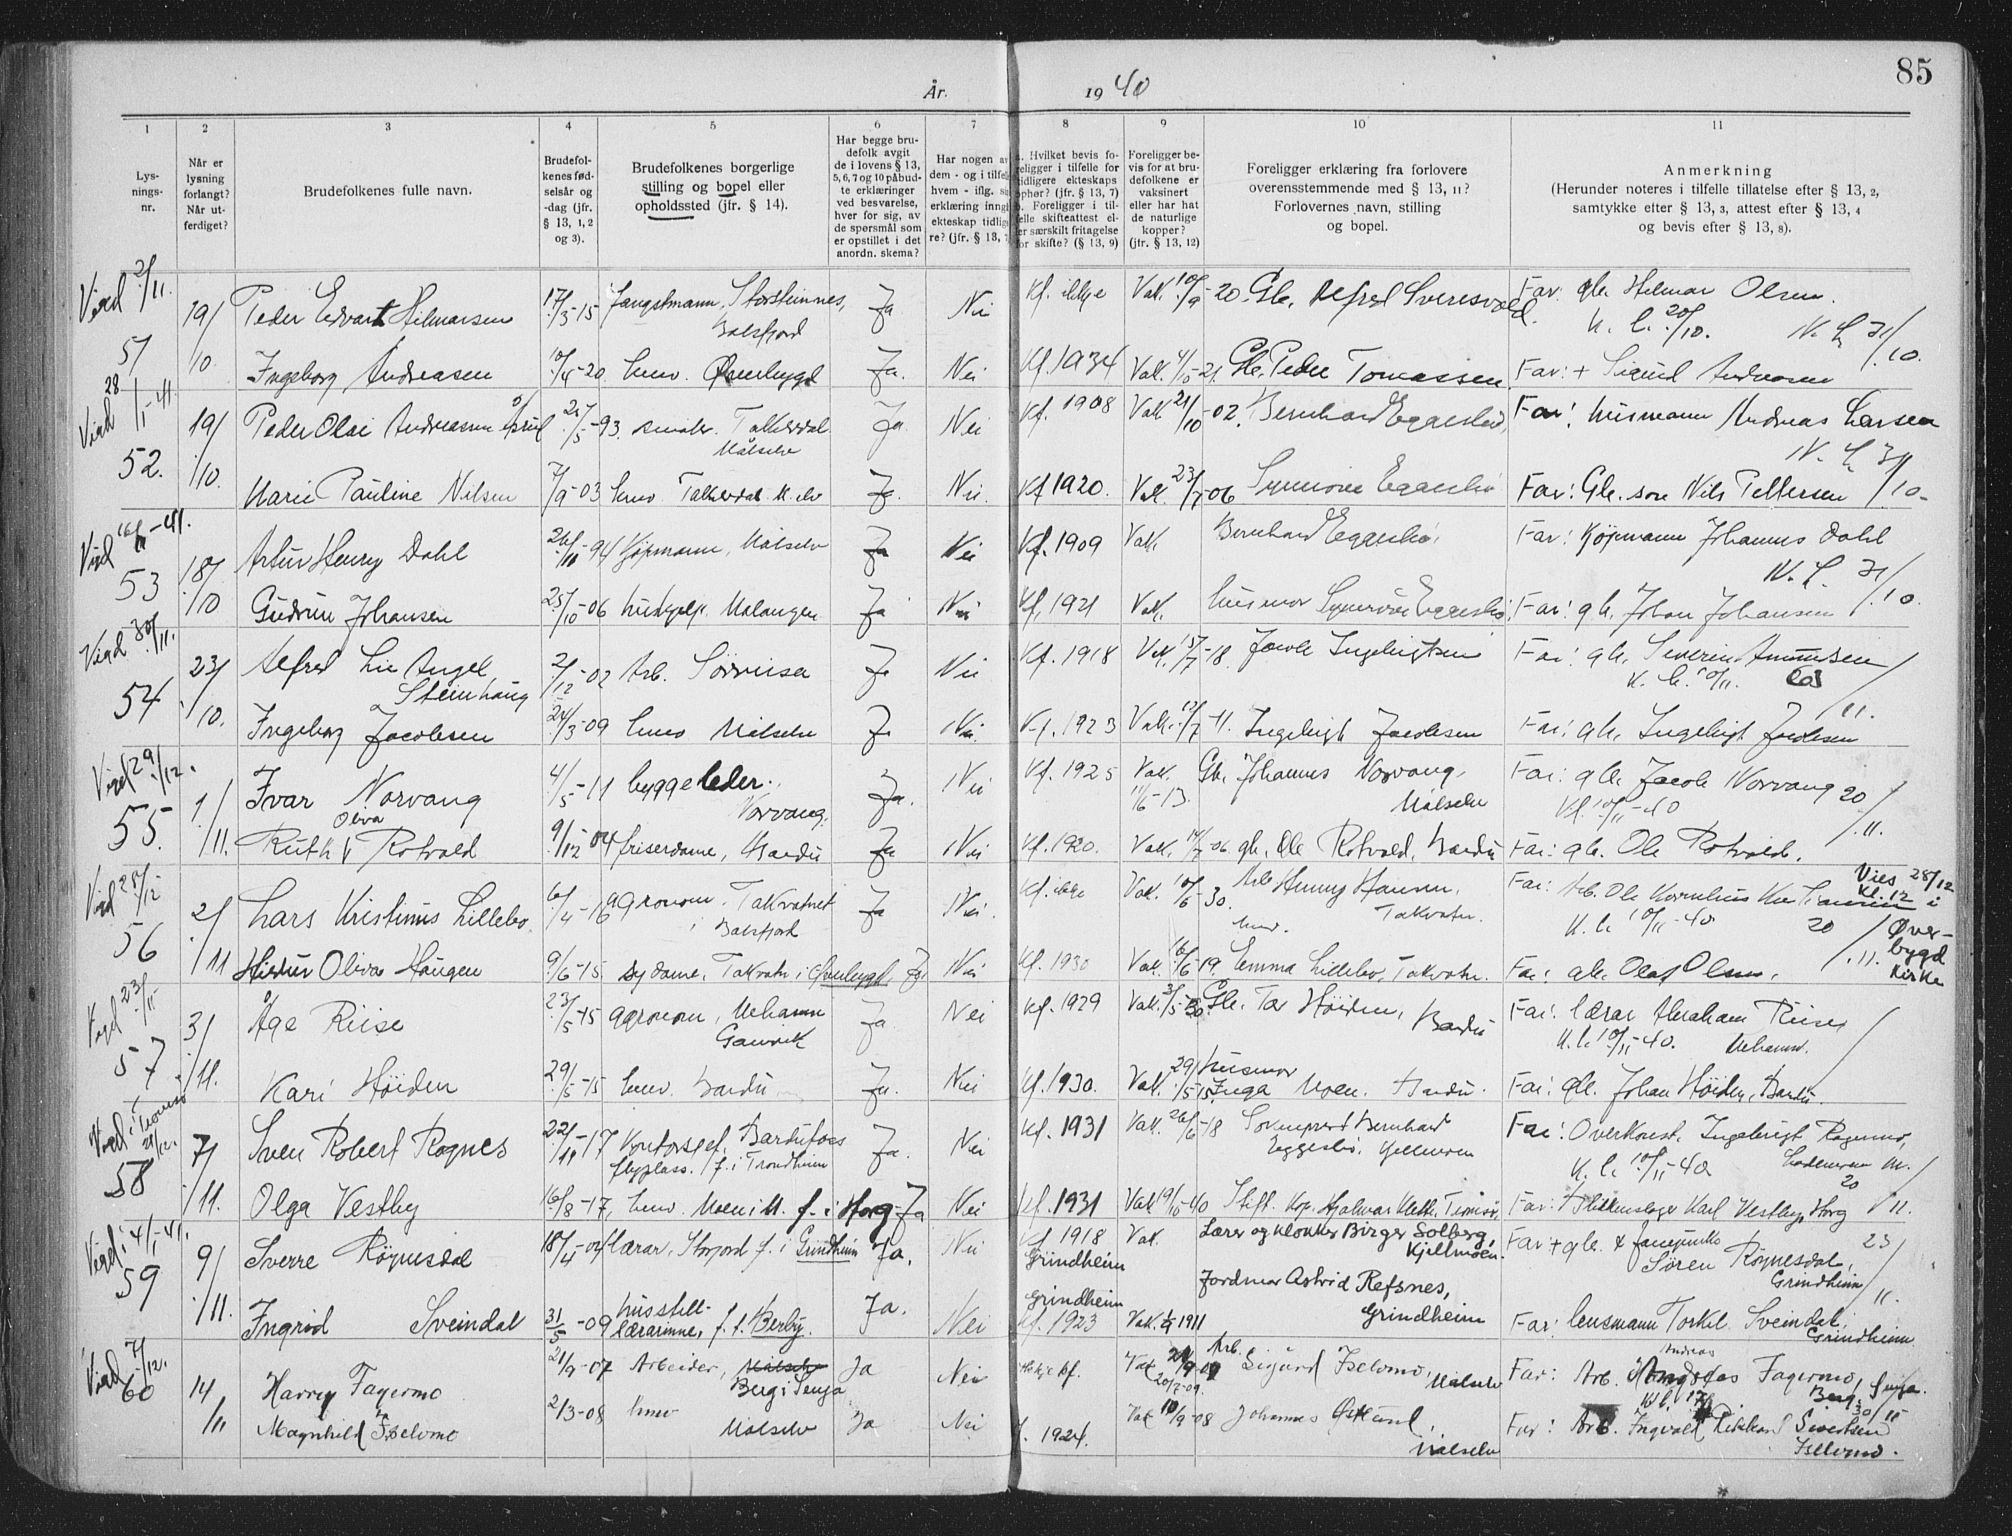 85
År. 19 40
1 2 3 4 5 6 7 8 9 10 11
Lys-
nings-
nr.
Når er
lysning
forlangt?
Når ut-
ferdiget?
Brudefolkenes fulle navn.
Brudefol-
kenes fød-
selsår og
-dag (jfr.
§ 13, 1, 2
og 3).
Brudefolkenes borgerlige
stilling og bopel eller
opholdssted (jfr. § 14).
Har begge bru-
defolk avgit
de i lovens § 13,
5, 6, 7 og 10 påbud-
te erklæringer
ved besvarelse,
hver for sig, av
de spørsmål som
er opstillet i det
anordn. skema?
Har nogen av
dem - og i tilfel
hvem - iflg. si
erklæring inngå
ekteskap tidlige
re? (jfr. § 13, 7
. Hvilket bevis fo-
religger i tilfelle for
tidligere ekteskaps
ophør? (jfr. § 13, 7)
b. Foreligger i til-
felle skifteattest el-
er særskilt fritagelse
for skifte? (§ 13, 9)
Foreligger be-
vis for at bru-
defolkene er
vaksinert
eller har hat
de naturlige
kopper?
(jfr. § 13, 12)
Foreligger erklæring fra forlovere
overensstemmende med § 13, 11?
Forlovernes navn, stilling
og bopel.
Anmerkning
(Herunder noteres i tilfelle tillatelse efter § 13, 2,
samtykke efter § 13, 3, attest efter § 13, 4
og bevis efter § 13, 8).
Vied 2/11.
19/ Peder Edvart Hilmarsen 17/3-15 Fangstmann, Storsteinnes, Ja Nei Kf. ikkje Vak. 10/9-20. Gb. Alfred Sveresvold. Far. gb. Hilmar Olsen.
Balsfjord K. l. 20/10. N. L. 31/10.
51 /10 Ingeborg Andreasen 10/4-20 heim. Øverbygd Ja. Nei Kf. 1934 Vak. 4/5-21. Gb. Peder Tomassen. Far: + Sigurd Andreasen
Vied 28/1-41
19/ Peder Olai Andreasen 25/5-93. Takerdal Ja Nei Kf. 1908 Vak 21/10-02. Bernhard Eggesbø, Far: husmann Andreas Larsen
Målselv N. L. 31/10-
52. /10. Marie Pauline Nilsen 7/9-03 heim Takerdal M.elv Ja. Nei. Kf 1920. Vak. 23/7-06 Synnøve Eggesbø Far: Gb. søn Nils Pettersen
Vied -41.
18/ Artur Henry Dahl 26/11-94 Kjøpmann, Målselv Ja Nei Kf. 1909 Vak. Bernhard Eggesbø. Far: Kjøpmann Johannes Dahl
N. L. 31/10.
53 /10 Gudrun Johansen 25/10-06 hushjelp. Malangen Ja Nei Kf, 1921 Vak. husmor Synnøve Eggesbø. Far: gb. Johan Johansen
Vied 30/11.
23/ Alfred Lie Angel 2/12-02 Arb. Sørreisa Ja Nei Kf. 1918 Vak. 15/7-18. Jacob Ingebrigtsen Far: gb. Severin Amundsen
Steinhaug K. l. 10/11.
54 /10. Ingeborg Jacobsen 24/3-09 heim Målselv Ja Nei. Kf. 1923 Vak. 12/7-11. Ingebrigt Jacobsen Far: gb. Ingebrigt Jacobsen 11.
Vied 29/12.
1/ Ivar Norvang 4/5-11 byggeleder. Ja. Nei Kf. 1925 Vak. 11/6-13. Gb. Johannes Norvang, Far: gb. Jacob Norvang 20/11.
Norvang. Målselv Kl. 10/11-40
55. /11. Ruth Oliva Rotvold 9/12 04 friserdame, Bardu Ja Nei Kf. 1920. Vak. 14/7-06 gb. Ole Rotvold, Bardu Far: gb. Ole Rotvold.
Vied 28/12
2/ Lars Kristinus Lillebo 6/4-16 agronom. Takvatnet Ja Nei. Kf. ikke Vak. 10/6-30. Arb Henry Hansen, Far: Arb. Ole Kornelius
i Balsfjord Takvatn. K. l. 10/11-40 20/.11.
Vies 28/12 kl. 12 i Øver-
bygd
kirke
56 /11 Oliva Haugen 9/6-15 sydame. Takvatn i Øverbygd. Ja Nei Kf. 1930 Vak. 16/6-19. heim. Emma Lillebo, Takvatn. Far: gb. Olaf Olsen.
Vied 23/11
3/ Åge Riise 23/5-15 agronom, Mehamn Ja. Nei Kf. 1929 Vak. 3/5-30. Gb. Tor Høiden, Bardu Far: lærar Abraham Riise,
Gamvik K. l. 10/11-40. Mehamn.
57 /11. Kari Høiden 29/5-15 heim. Bardu Ja. Nei Kf. 1930. Vak. 29/5-15. husmor Inga Moen. Bardu. Far: gb. Johan Høiden, Bardu.
Vied i Tromsø 21/12.
7/ Sven Robert Rognes 22/11-17 Kontorsjef, Bardufoss Ja. Nei Kf. 1931 Vak. 26/6-18 Sokneprest Bernhard Far: Overkonst. Ingebrigt Rognmo,
flyplass. f. i Trondheim Eggesbø, Kjellmoen K. l. 10/11-40. 20/11.
58 /11. Olga Vestby 16/8-17, heim. Moen i M. f. i Horg Ja Nei Kf. 1931 Vak 19/10-40 Stift. Kap. Hjalmar Tromsø, Far: Karl Vestby, Horg
Vied: 4/1-41.
9/ Sverre Røynesdal 18/4-04 lærar, Storjord f. i Grindheim Ja. Nei Kf 1918 Vak. Lærer og klokker Birger Solberg, Far + gb.
Grindheim Kjellmoen. Søren Røynesdal, 23/11.
Grindheim
59 /11. Ingrid Sveindal 31/5-09 husstell- Ja. Nei Grindheim Kf. 1923 Vak. 1911 Jordmor Astrid Refsnes, Far: lensmann Torkel Sveindal,
lærarinne, f. i. Grindheim Grindheim
Vied 7/12.
60 14 Harry Fagermo 21/9-07 Arbeider, Målselv Ja Nei ikkje kf. Vak Arb. Sigurd Iselvmo, Målselv Far: Arb. Andreas Fagermo, Berg, Senja.
Berg i Senja 20/7-09. Kl. 17/ 30/11
/11 Magnhild Iselvmo 2/3-08 heim Målselv Ja Nei 1924. Vak 10/9-08 Johannes Østlund, Målselv Far: Arb. Ingvald Rikkard Sivertsen
Iselvmo.